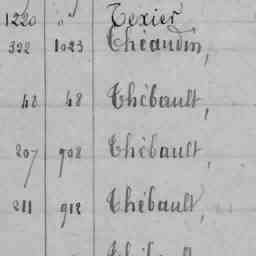 1220 " " Texier
392 1023 Théaudin,
48 48 Thébault,
207 908 Thébault,
211 912 Thébault,